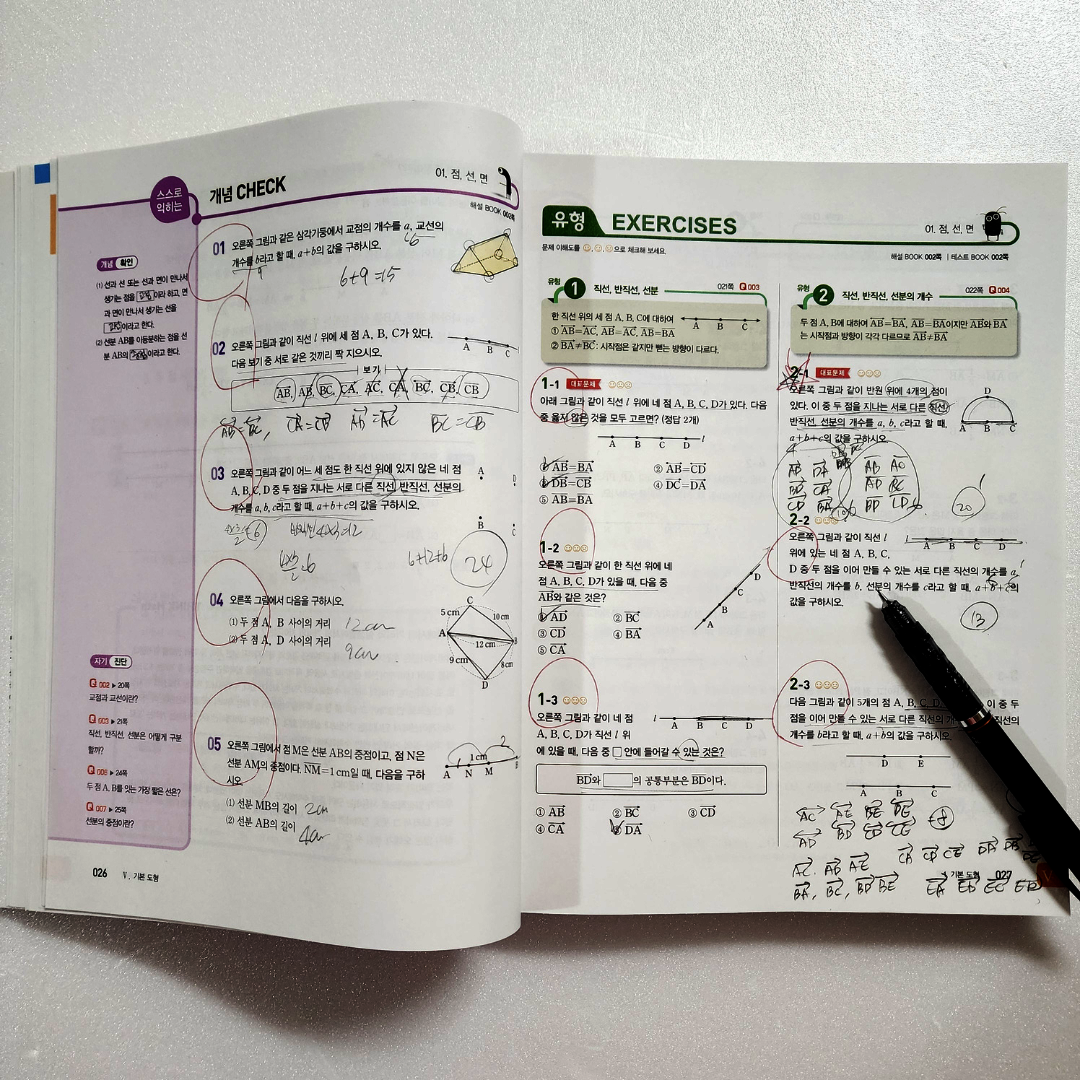 스스로
익히는
개념 CHECK
01. 점, 선, 면
해설 BOOK 002쪽
개념 확인
⑴ 선과 선 또는 선과 면이 만나서
생기는 점을 이라 하고, 면
과 면이 만나서 생기는 선을
이라고 한다.
⑵ 선분 AB를 이등분하는 점을 선
분 AB의 이라고 한다.
01 오른쪽 그림과 같은 삼각기둥에서 교점의 개수를 a, 교선의
개수를 b라고 할 때, a+b의 값을 구하시오.
6
9
6+9=15
02 오른쪽 그림과 같이 직선 l 위에 세 점 A, B, C가 있다.
다음 보기 중 서로 같은 것끼리 짝 지으시오.
A B C
보기
AB, AB, BC, CA, AC, CA, BC, CB, CB
03 오른쪽 그림과 같이 어느 세 점도 한 직선 위에 있지 않은 네 점
A, B, C, D 중 두 점을 지나는 서로 다른 직선, 반직선, 선분의
개수를 a, b, c라고 할 때, a+b+c의 값을 구하시오.
A
D
B
C
6+12+6
24
04 오른쪽 그림에서 다음을 구하시오.
⑴ 두 점 A, B 사이의 거리 12cm
⑵ 두 점 A, D 사이의 거리 9cm
C
5 cm 10 cm
A 12 cm B
9 cm 8 cm
D
05 오른쪽 그림에서 점 M은 선분 AB의 중점이고, 점 N은
선분 AM의 중점이다. NM=1 cm일 때, 다음을 구하
시오.
⑴ 선분 MB의 길이 2cm
⑵ 선분 AB의 길이 4cm
2
1 cm
A N M B
자기 진단
Q 002 ▶ 20쪽
교점과 교선이란?
Q 003 ▶ 21쪽
직선, 반직선, 선분은 어떻게 구분
할까?
Q 006 ▶ 24쪽
두 점 A, B를 잇는 가장 짧은 선은?
Q 007 ▶ 25쪽
선분의 중점이란?
026 Ⅴ. 기본 도형
유형 EXERCISES
01. 점, 선, 면
문제 이해도를 으로 체크해 보세요.
해설 BOOK 002쪽 | 테스트 BOOK 002쪽
유형 1 직선, 반직선, 선분 021쪽 Q 003
한 직선 위의 세 점 A, B, C에 대하여
A B C
① AB=AC, AB=AC, AB=BA
② BA≠BC: 시작점은 같지만 뻗는 방향이 다르다.
1-1 대표문제
아래 그림과 같이 직선 l 위에 네 점 A, B, C, D가 있다. 다음
중 옳지 않은 것을 모두 고르면? (정답 2개)
A B C D l
① AB=BA ② AB=CD
③ DB=CB ④ DC=DA
⑤ AB=BA
1-2
오른쪽 그림과 같이 한 직선 위에 네
점 A, B, C, D가 있을 때, 다음 중
AB와 같은 것은?
① AD ② BC
③ CD ④ BA
⑤ CA
D
C
B
A
1-3
오른쪽 그림과 같이 네 점
A, B, C, D가 직선 l 위
에 있을 때, 다음 중 □ 안에 들어갈 수 있는 것은?
l A B C D
BD와 □의 공통부분은 BD이다.
① AB ② BC ③ CD
④ CA ⑤ DA
유형 2 직선, 반직선, 선분의 개수 022쪽 Q 004
두 점 A, B에 대하여 AB=BA, AB=BA이지만 AB와 BA
는 시작점과 방향이 각각 다르므로 AB≠BA
2-1 대표문제
오른쪽 그림과 같이 반원 위에 4개의 점이
있다. 이 중 두 점을 지나는 서로 다른 직선,
반직선, 선분의 개수를 a, b, c라고 할 때,
a+b+c의 값을 구하시오.
D
A B C
20
2-2
오른쪽 그림과 같이 직선 l
위에 있는 네 점 A, B, C,
D 중 두 점을 이어 만들 수 있는 서로 다른 직선의 개수를 a,
반직선의 개수를 b, 선분의 개수를 c라고 할 때, a+b+c의
값을 구하시오.
l A B C D
13
2-3
다음 그림과 같이 5개의 점 A, B, C, D, 이 중 두
점을 이어 만들 수 있는 서로 다른 직선의 직선의
개수를 b라고 할 때, a+b의 값을 구하시오.
D E
A B C
AC AE BE DE 8
AD BD CD CE
AC, AB AE CA CD CE DA DB
BA, BC, BD BE EA ED EC EB
기본 도형 027